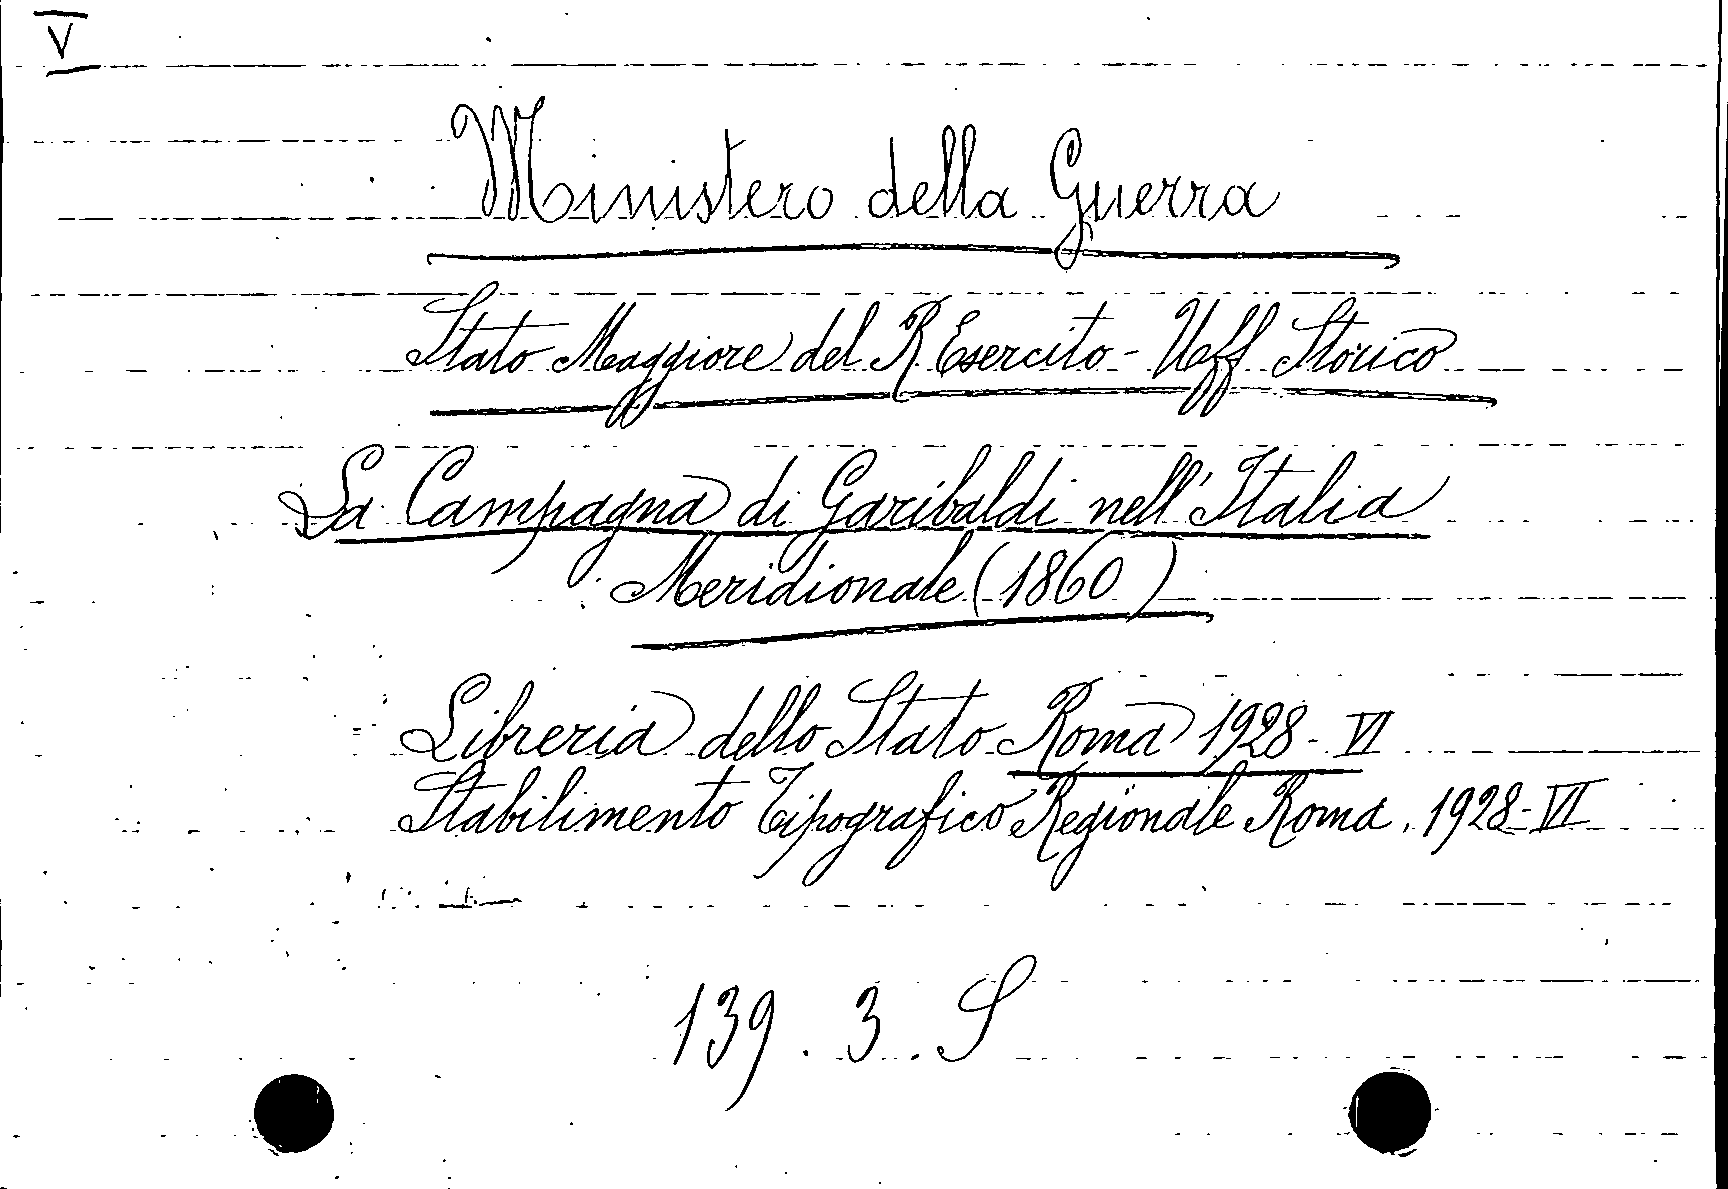 V
Ministero della Guerra
Stato Maggiore del R Esercito - Uff Storico
La Campagna di Garibaldi nell'Italia
Meridionale (1860)
Libreria dello Stato Roma 1928 - VI
Stabilimento Tipografico Regionale Roma. 1928 - VI
139. 3. S